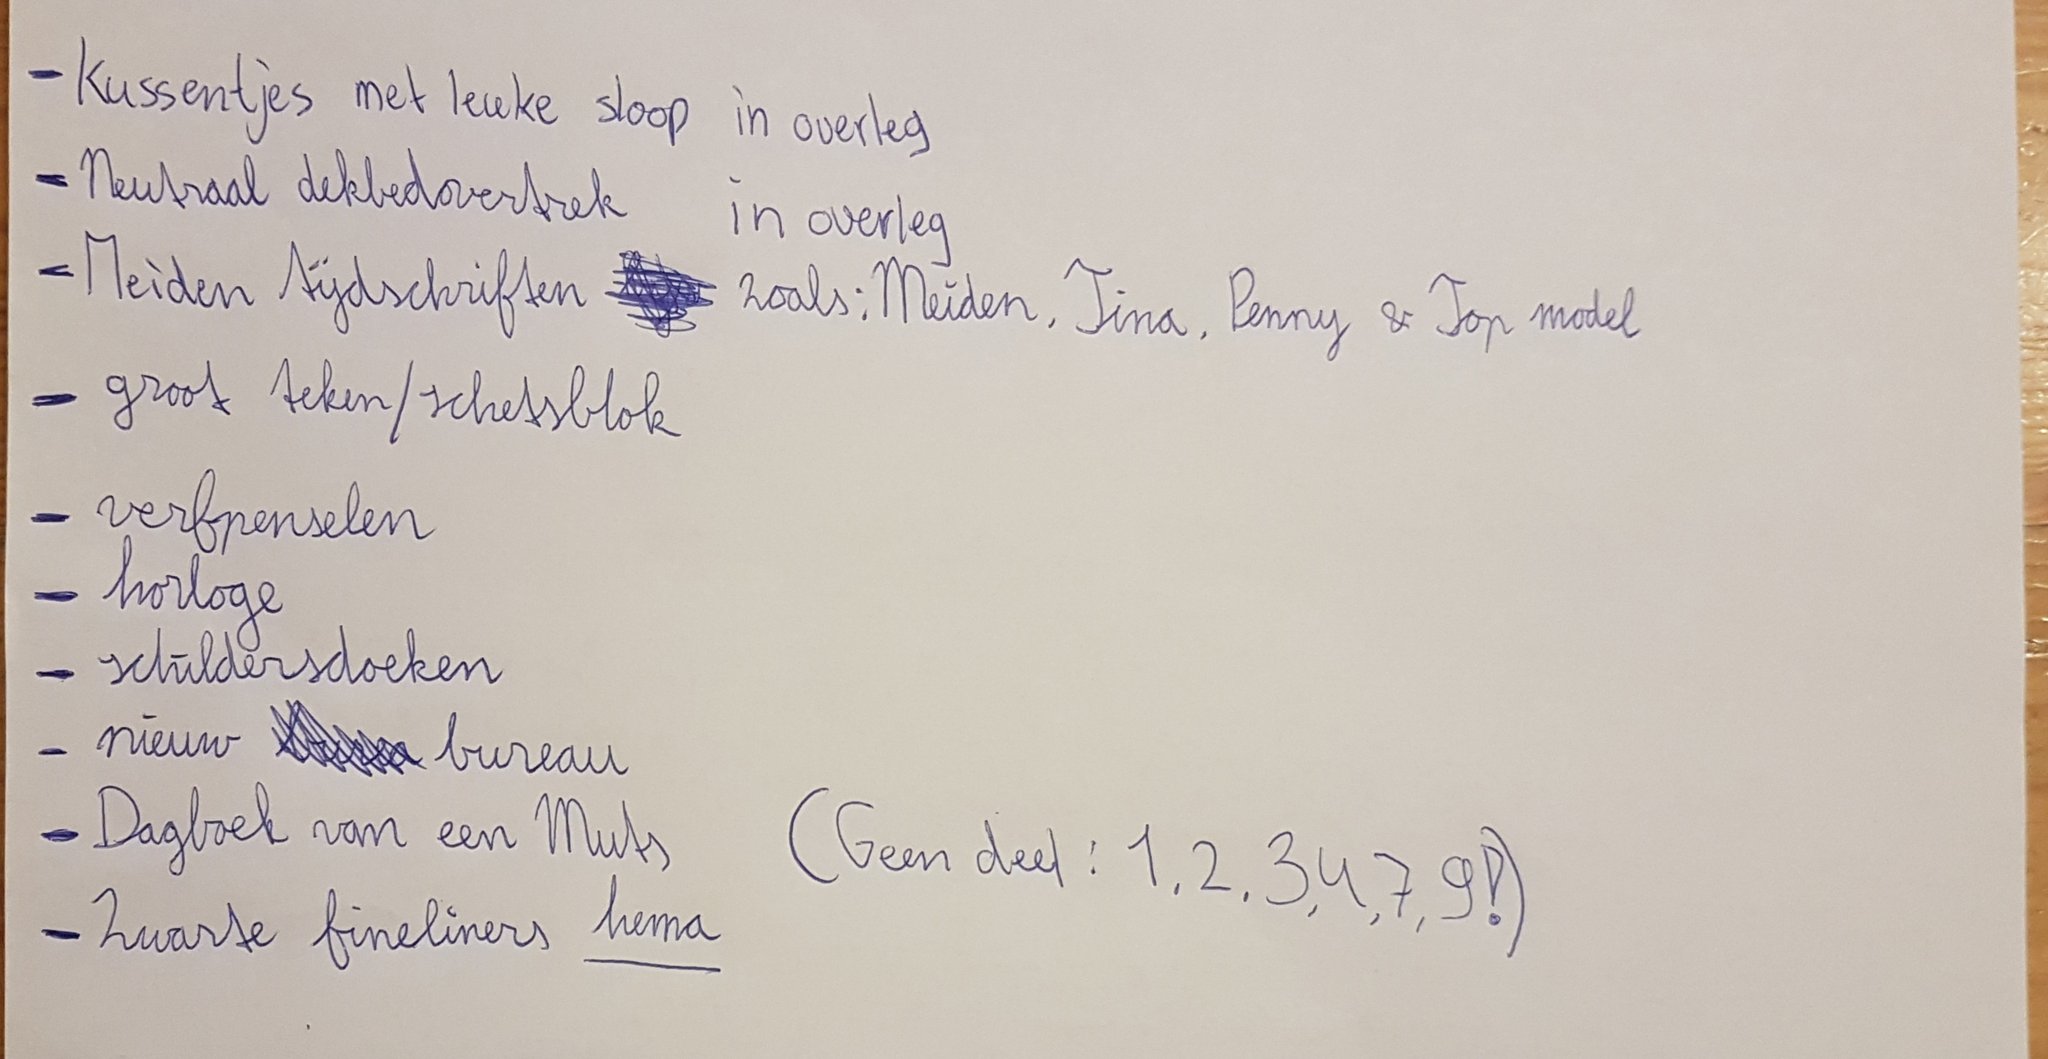 - Kussentjes met leuke sloop in overleg
- Neutraal dekbedovertrek in overleg
- Meiden tijdschriften zoals: Meiden, Tina, Penny & Top model
- groot teken/schetsblok
- verfpenselen
- horloge
- schildersdoeken
- nieuw bureau
- Dagboek van een Muts (Geen deel: 1, 2, 3, 4, 7, 9!)
- Zwarte fineliners hema